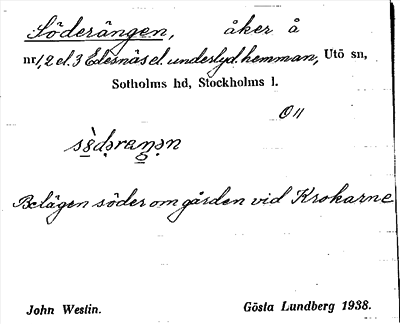 Söderängen, åker å
nr 1, 2 el. 3 Edesnäs el. underlyd. hemman, Utö sn,
Sotholms hd, Stockholms l.
O 11
Belägen söder om gården vid Krokarne
John Westin. Gösta Lundberg 1938.